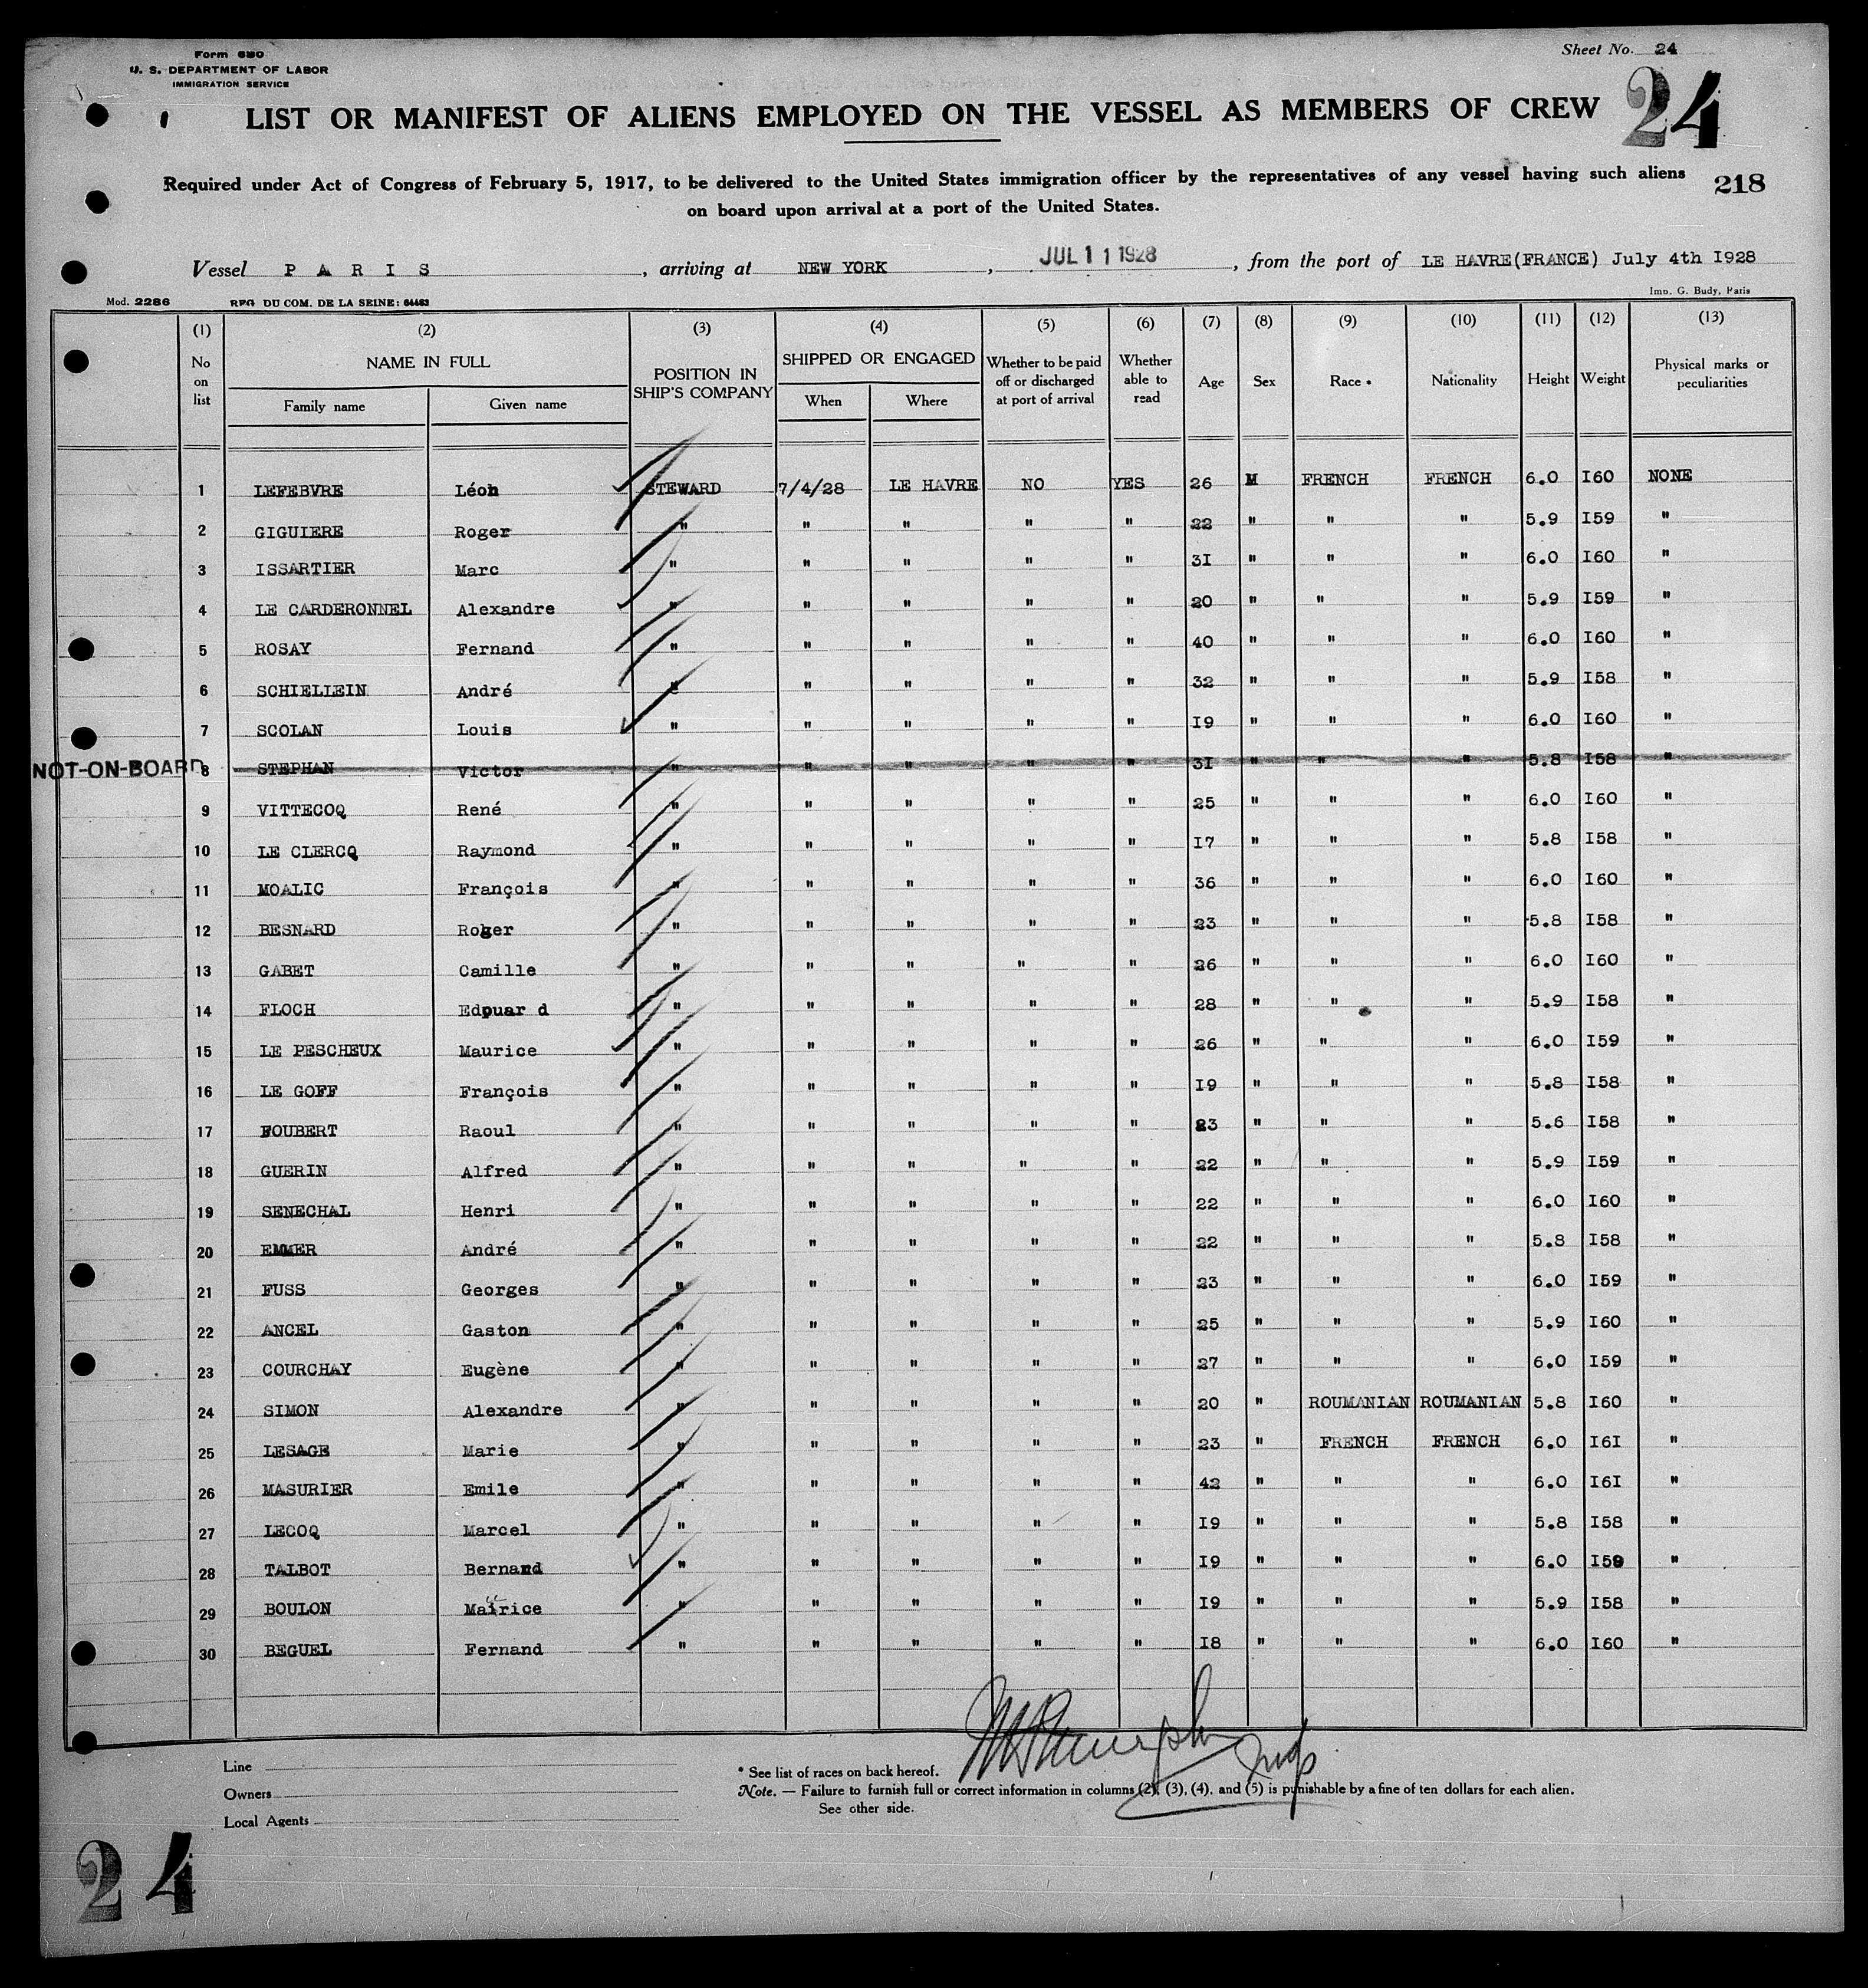 Form 680
U. S. DEPARTMENT OF LABOR
IMMIGRATION SERVICE
Sheet No. 24
24
LIST OR MANIFEST OF ALIENS EMPLOYED ON THE VESSEL AS MEMBERS OF CREW
Required under Act of Congress of February 5, 1917, to be delivered to the United States immigration officer by the representatives of any vessel having such aliens
on board upon arrival at a port of the United States.
218
Vessel P A R I S , arriving at NEW YORK , JUL 11 1928 , from the port of LE HAVRE(FRANCE) July 4th I928
Mod. 2286 DU COM. DE LA SEINE: Imp. G. Budy, Paris
(1) (2) (3) (4) (5) (6) (7) (8) (9) (10) (11) (12) (13)
No on list NAME IN FULL Family name Given name POSITION IN SHIP'S COMPANY SHIPPED OR ENGAGED When Where Whether to be paid off or discharged at port of arrival Whether able to read Age Sex Race * Nationality Height Weight Physical marks or peculiarities
1 LEFEBVRE Léon STEWARD 7/4/28 LE HAVRE NO YES 26 M FRENCH FRENCH 6.0 I60 NONE
2 GIGUIERE Roger " " " " " 22 " " " 5.9 I59 "
3 ISSARTIER Marc " " " " " 3I " " " 6.0 I60 "
4 LE CARDERONNEL Alexandre " " " " " 20 " " " 5.9 I59 "
5 ROSAY Fernand " " " " " 40 " " " 6.0 I60 "
6 SCHIELLEIN André " " " " " 32 " " " 5.9 I58 "
7 SCOLAN Louis " " " " " I9 " " " 6.0 I60 "
NOT-ON-BOARD 8 STEPHAN Victor " " " " " 3I " " " 5.8 I58 "
9 VITTECOQ René " " " " " 25 " " " 6.0 I60 "
10 LE CLERCQ Raymond " " " " " I7 " " " 5.8 I58 "
11 MOALIC François " " " " " 36 " " " 6.0 I60 "
12 BESNARD Roger " " " " " 23 " " " 5.8 I58 "
13 GABET Camille " " " " " 26 " " " 6.0 I60 "
14 FLOCH Edouar d " " " " " 28 " " " 5.9 I58 "
15 LE PESCHEUX Maurice " " " " " 26 " " " 6.0 I59 "
16 LE GOFF François " " " " " I9 " " " 5.8 I58 "
17 FOUBERT Raoul " " " " " 23 " " " 5.6 I58 "
18 GUERIN Alfred " " " " " 22 " " " 5.9 I59 "
19 SENECHAL Henri " " " " " 22 " " " 6.0 I60 "
20 EMMER André " " " " " 22 " " " 5.8 I58 "
21 FUSS Georges " " " " " 23 " " " 6.0 I59 "
22 ANCEL Gaston " " " " " 25 " " " 5.9 I60 "
23 COURCHAY Eugène " " " " " 27 " " " 6.0 I59 "
24 SIMON Alexandre " " " " " 20 " ROUMANIAN ROUMANIAN 5.8 I60 "
25 LESAGE Marie " " " " " 23 " FRENCH FRENCH 6.0 I6I "
26 MASURIER Emile " " " " " 42 " " " 6.0 I6I "
27 LECOQ Marcel " " " " " I9 " " " 5.8 I58 "
28 TALBOT Bernard " " " " " I9 " " " 6.0 I59 "
29 BOULON Mairice " " " " " I9 " " " 5.9 I58 "
30 BEGUEL Fernand " " " " " I8 " " " 6.0 I60 "
Line
Owners
Local Agents
* See list of races on back hereof.
Note. — Failure to furnish full or correct information in columns (2), (3), (4), and (5) is punishable by a fine of ten dollars for each alien.
See other side.
24